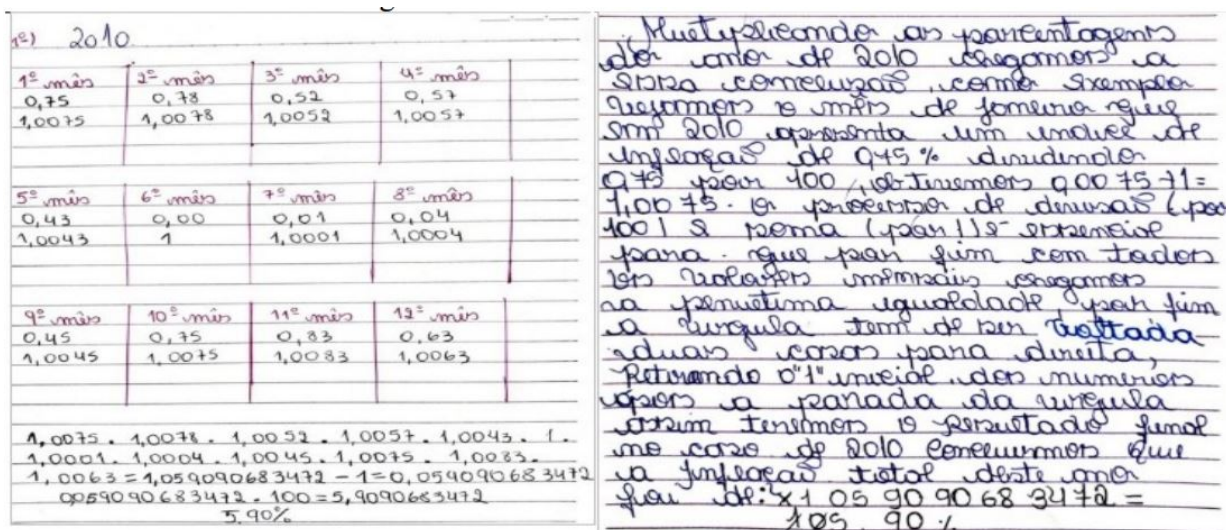 1º) 2010
1º mês 2º mês 3º mês 4º mês
0,75 0,78 0,52 0,57
1,0075 1,0078 1,0052 1,0057
5º mês 6º mês 7º mês 8º mês
0,43 0,00 0,01 0,04
1,0043 1 1,0001 1,0004
9º mês 10º mês 11º mês 12º mês
0,45 0,75 0,83 0,63
1,0045 1,0075 1,0083 1,0063
1,0075 . 1,0078 . 1,0052 . 1,0057 . 1,0043 . 1 .
1,0001 . 1,0004 . 1,0045 . 1,0075 . 1,0083 .
1,0063 = 1,059090683472 - 1 = 0,059090683472
0,059090683472 . 100 = 5,9090683472
5,90%
Multyplicando as parcentagens
do ano de 2010 chegamos a
essa concluzão, como exemplo
vejamos o mês de janeiro que
em 2010 apresenta um indice de
inflação de 0,75 % dividindo
0,75 por 100, obtivemos 0,0075+1=
1,0075. O processo de divisão (por
100) e soma (por 1) é essencial
para que por fim com todos
os valores mensais chegamos
a penultima igualdade por fim
a virgula tem de ser voltada
duas casas para direita,
Retirando o "1" inicial dos numeros
após a parada da virgula
assim teremos o Resultado final
no caso de 2010 Concluimos que
a Inflação total deste ano
foi de: x1 05 90 90 68 3472 =
105, 90 %